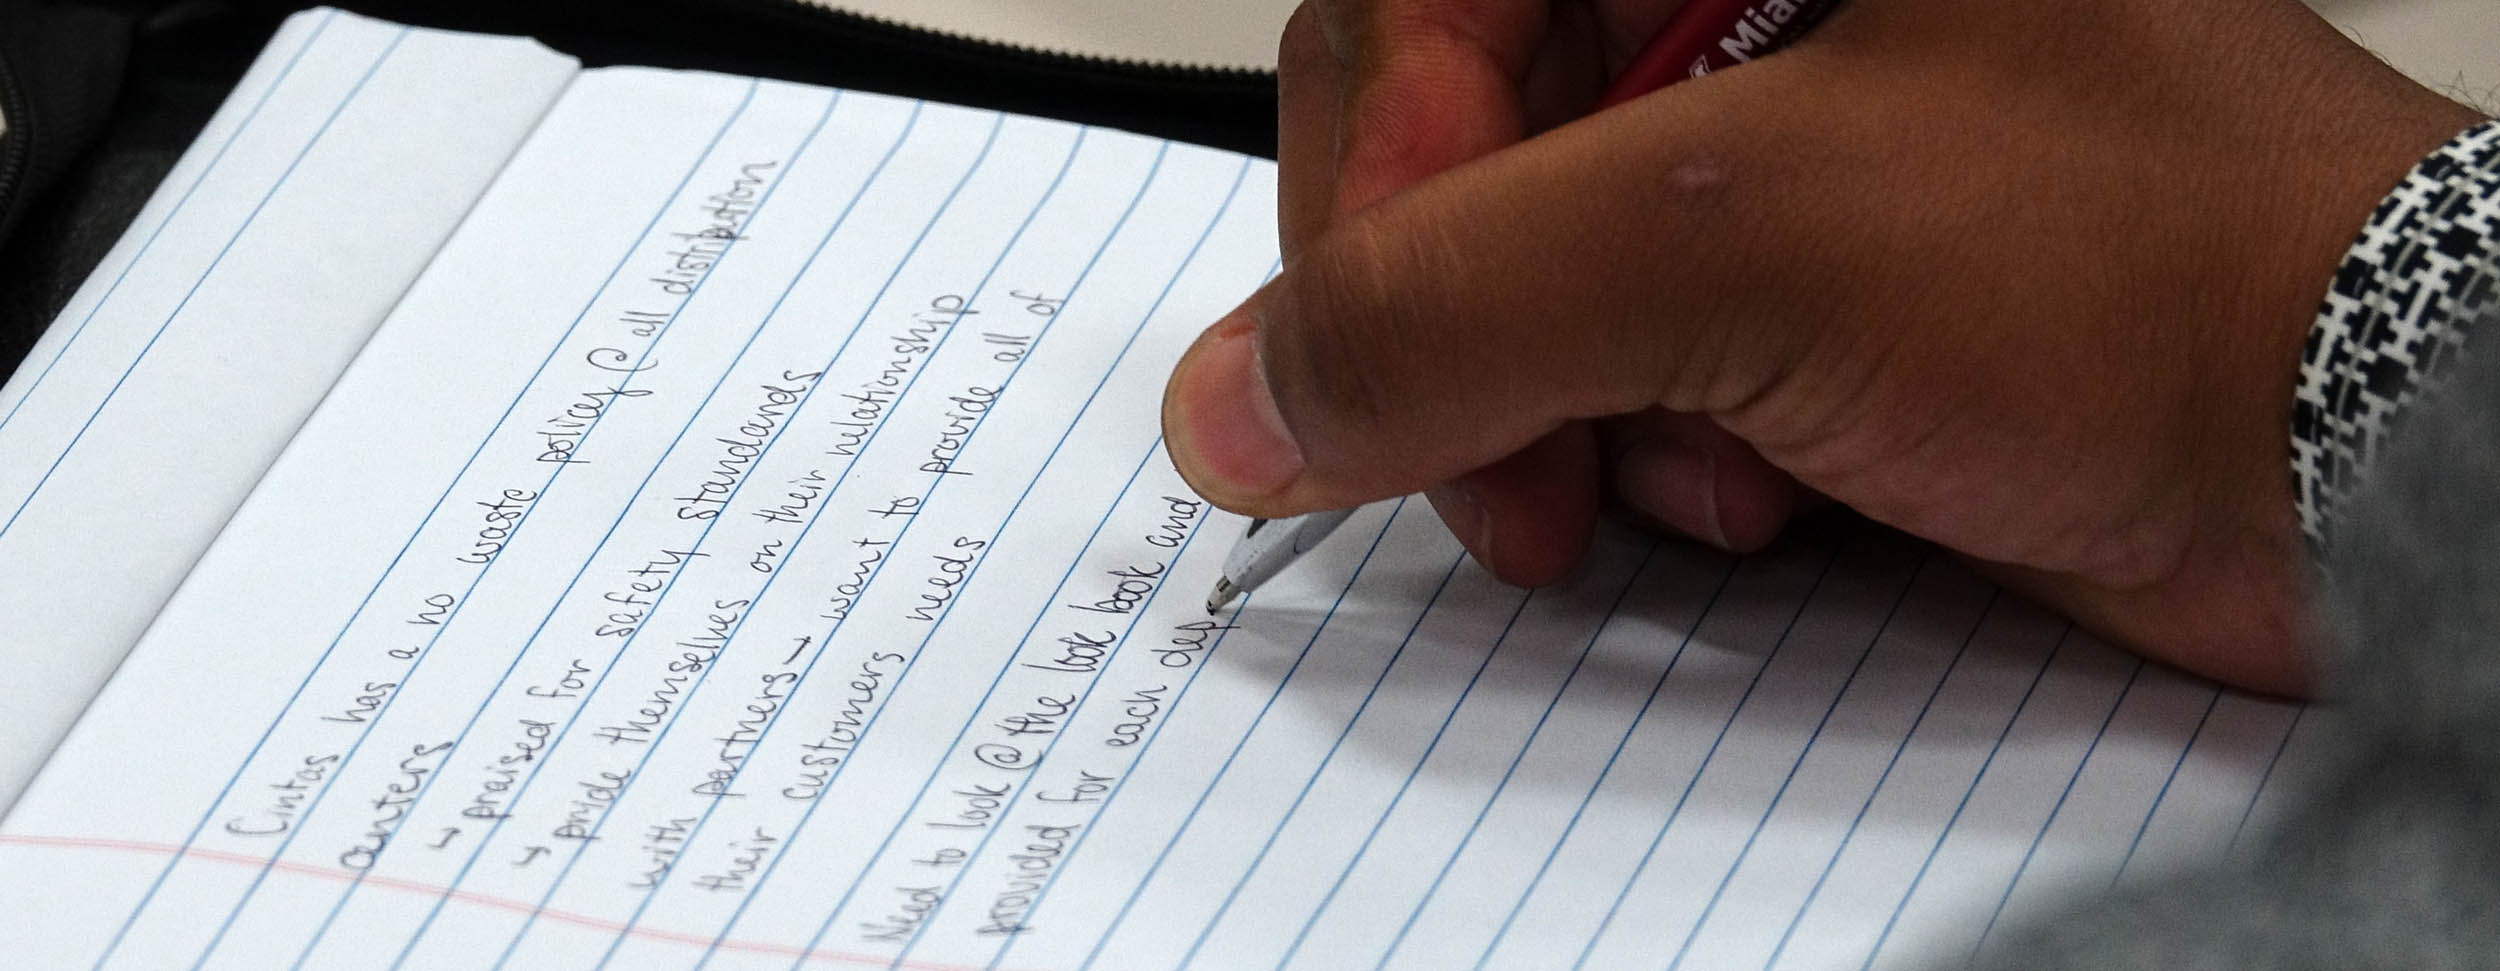 Cintas has a no waste policy @ all distribution
centers
→ praised for safety standards
→ pride themselves on their relationship
with partners → want to provide all of
their customers needs
Need to look @ the look book and
provided for each dep
Mia